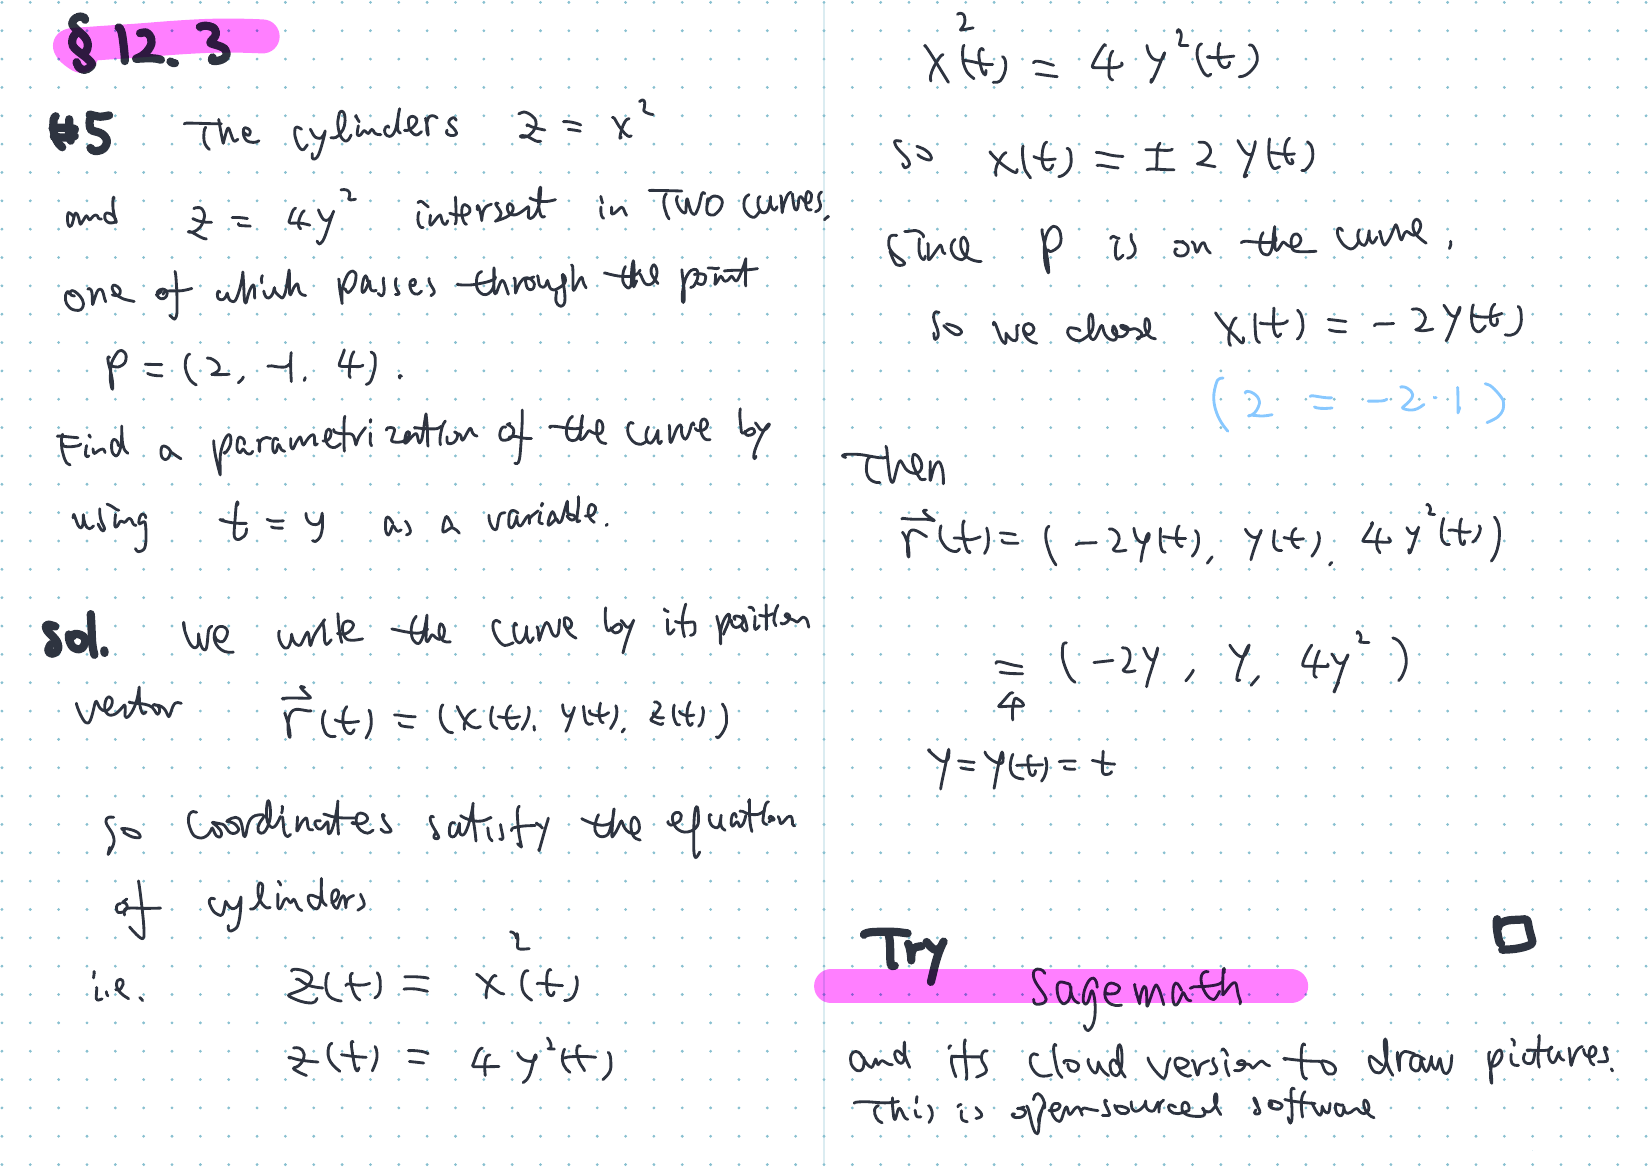 § 12.3
#5 The cylinders z = x²
and z = 4y² intersect in Two curves,
one of which passes through the point
P = (2, -1, 4).
Find a parametrization of the curve by
using t = y as a variable.
Sol. We write the curve by its position
vector r⃗(t) = (x(t), y(t), z(t))
So coordinates satisfy the equation
of cylinders
i.e. z(t) = x²(t)
z(t) = 4 y²(t)
x²(t) = 4 y²(t)
So x(t) = ± 2 y(t)
Since P is on the curve,
So we chose x(t) = - 2 y(t)
(2 = -2·1)
Then
r⃗(t) = (-2y(t), y(t), 4y²(t))
= (-2y, y, 4y²)
y = y(t) = t
□
Try
Sagemath
and its cloud version to draw pictures.
This is open-sourced software